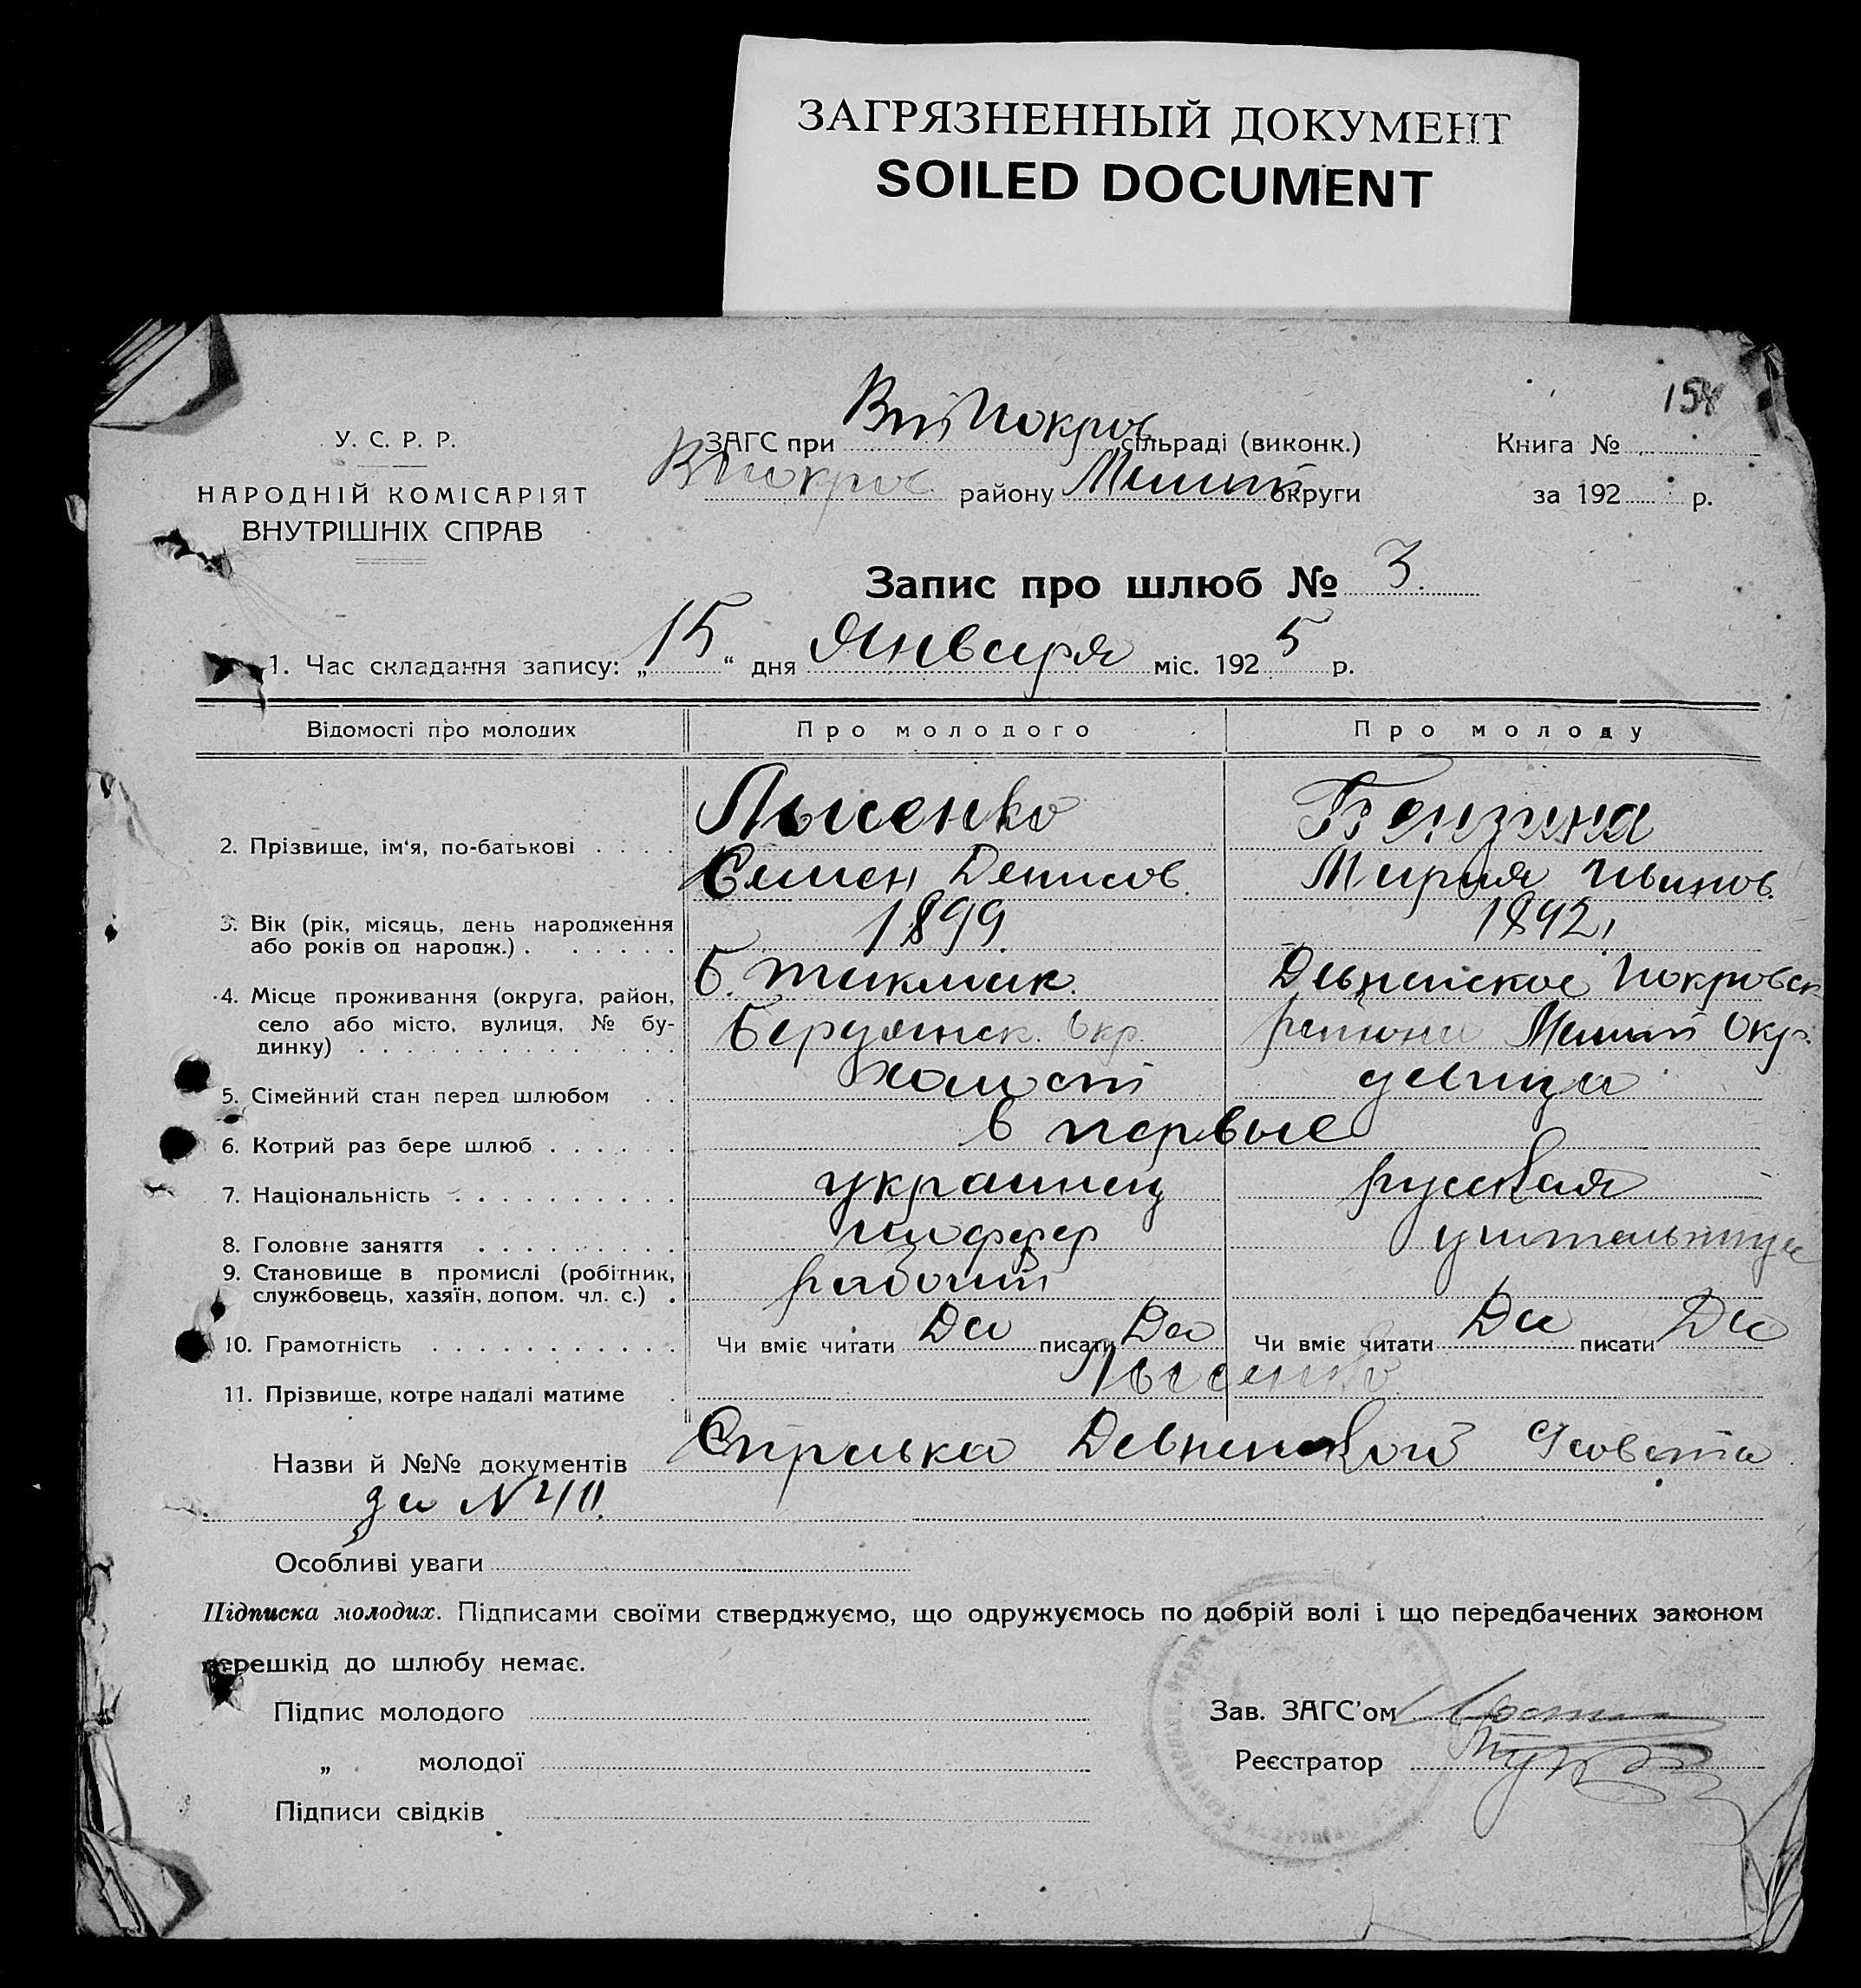 ЗАГРЯЗНЕННЫЙ ДОКУМЕНТ
SOILED DOCUMENT
154
У. С. Р. Р.
НАРОДНІЙ КОМІСАРІЯТ
ВНУТРІШНІХ СПРАВ
ЗАГС при Вп Покров сільраді (виконк.)
ВПокров району Мелит округи
Книга №
за 192 р.
Запис про шлюб № 3.
1. Час складання запису: „15“ дня Января міс. 1925 р.
Відомості про молодих Про молодого Про молоду
2. Прізвище, ім'я, по-батькові
Лысенко
Семен Денисов.
Бензина
Мария Иванов.
3. Вік (рік, місяць, день народження
або років од народж.)
1899.
1892,
4. Місце проживання (округа, район,
село або місто, вулиця, № бу-
динку)
Б. Токмак.
Бердянск. Окр.
Девненское Покровск
района Мелит Окр.
5. Сімейний стан перед шлюбом холост девица
6. Котрий раз бере шлюб в первые
7. Національність украинец русская
8. Головне заняття шоффер учительница
9. Становище в промислі (робітник,
службовець, хазяїн, допом. чл. с.)
рабочий
10. Грамотність Чи вміє читати Да писати Да Чи вміє читати Да писати Да
11. Прізвище, котре надалі матиме Лысенко
Назви й №№ документів Справка Девненской С совета
за №40.
Особливі уваги
Підписка молодих. Підписами своїми стверджуємо, що одружуємось по добрій волі і що передбачених законом
перешкід до шлюбу немає.
Підпис молодого
„ молодої
Підписи свідків
Зав. ЗАГС'ом
Реєстратор